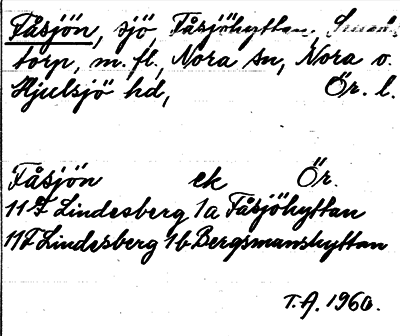 Fåsjön, sjö Fåsjöhyttan, Smed-
torp, m. fl., Nora sn, Nora o.
Hjulsjö hd, Ör. l.
Fåsjön ek Ör.
11F Lindesberg 1a Fåsjöhyttan
11F Lindesberg 1b Bergsmanshyttan
T.A. 1960.